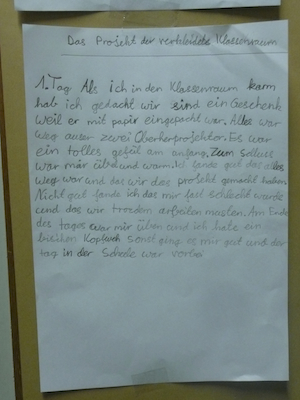 Das Projekt der verkleidete Klassenraum
1.Tag Als ich in den Klassenraum kam
hab ich gedacht wir sind ein Geschenk
weil er mit papir eingepacht war. Alles war
weg auser zwei Oberherproschton. Es war
ein tolles gefül am anfang. Zum Schluss
war mir übel und warm. Ich fande gut das alles
weg war und das wir des projekt gemacht haben
Nicht gut fande ich das mir fast schlecht wurde
und das wir trozdem arfeiten masten. Am Ende
des tages war mir üben und ich hate ein
bischen Kopfweh sonst ging es mir gut und der
tag in der Schule war vorbei